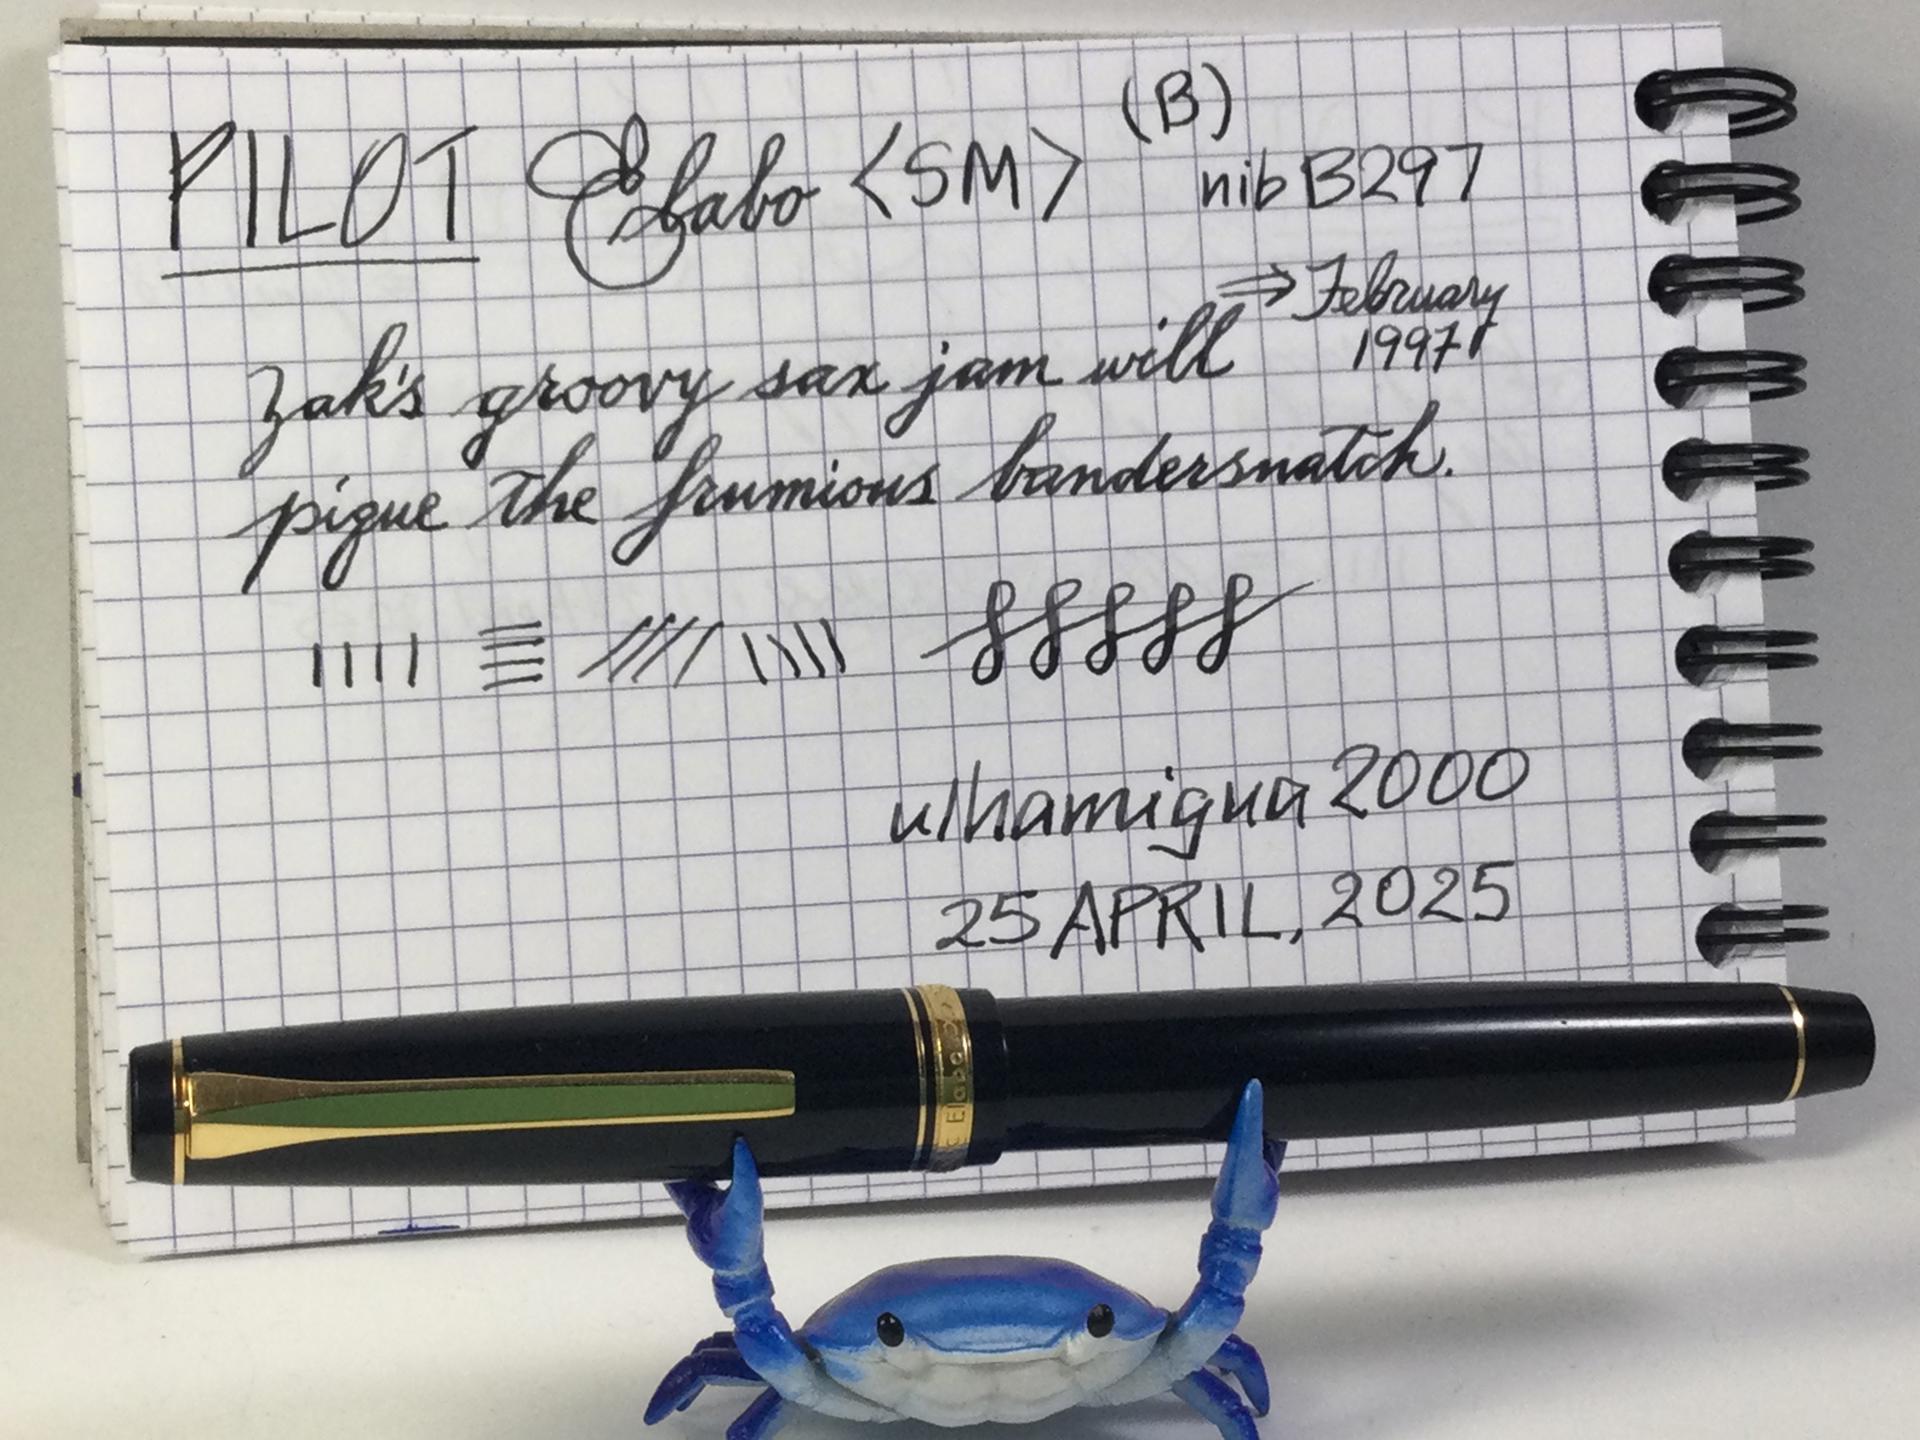 PILOT Elabo <SM> (B) nib B297
⇒ February
1997
Zak's groovy sax jam will
pique the frumious bandersnatch.
u/hamigua2000
25 APRIL, 2025
Elabo